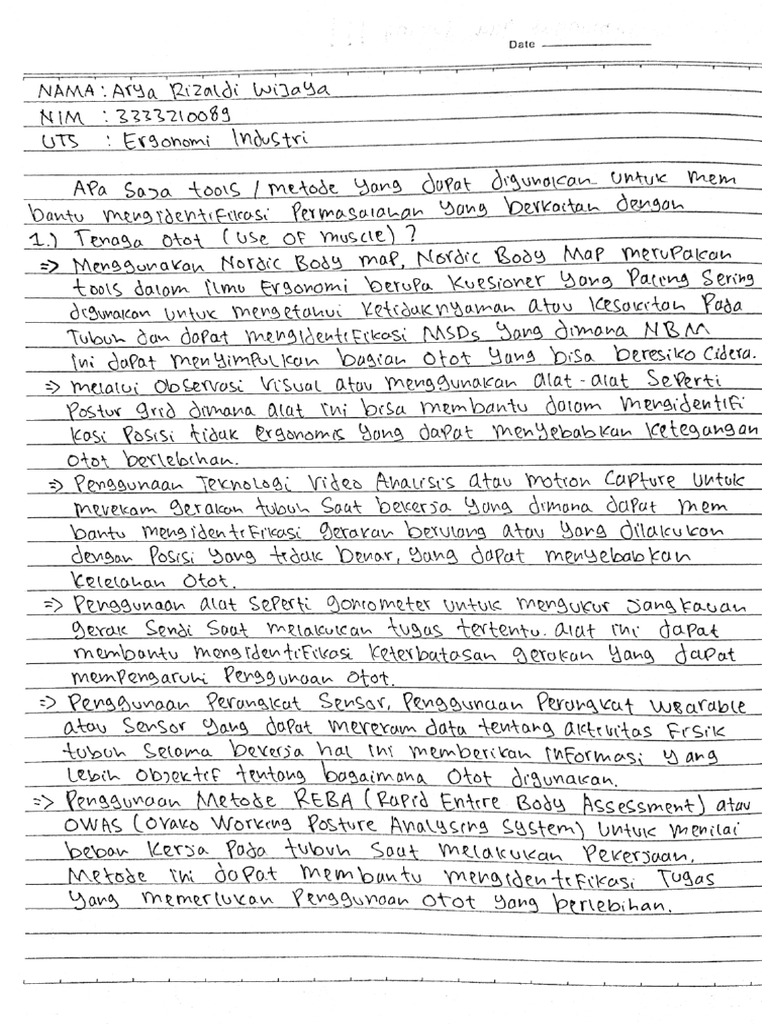 Date
NAMA : Arya Rizaldi Wijaya
NIM : 3333210089
UTS : Ergonomi Industri
Apa saja tools / metode yang dapat digunakan untuk mem
bantu mengidentifikasi Permasalahan yang berkaitan dengan
1.) Tenaga otot (use of muscle) ?
=> Menggunakan Nordic Body map, Nordic Body Map merupakan
tools dalam ilmu Ergonomi berupa kuesioner yang Paling Sering
digunakan untuk mengetahui ketidaknyaman atau kesakitan Pada
Tubuh dan dapat mengidentifikasi MSDs yang dimana NBM
ini dapat menyimpulkan bagian otot yang bisa beresiko cidera.
=> melalui observasi visual atau menggunakan alat-alat seperti
Postur grid dimana alat ini bisa membantu dalam mengidentifi
kasi Posisi tidak ergonomis yang dapat menyebabkan ketegangan
otot berlebihan.
=> Penggunaan Teknologi Video Analisis atau motion Capture untuk
merekam gerakan tubuh saat bekerja yang dimana dapat mem
bantu mengidentifikasi gerakan berulang atau yang dilakukan
dengan Posisi yang tidak benar, yang dapat menyebabkan
kelelahan otot.
=> Penggunaan alat seperti goniometer untuk mengukur jangkauan
gerak Sendi Saat melakukan tugas tertentu. alat ini dapat
membantu mengidentifikasi keterbatasan gerakan yang dapat
mempengaruhi Penggunaan otot.
=> Penggunaan Perangkat Sensor, Penggunaan Perangkat wearable
atau Sensor yang dapat merekam data tentang aktivitas Fisik
tubuh Selama bekerja hal ini memberikan informasi yang
lebih objektif tentang bagaimana otot digunakan.
=> Penggunaan Metode REBA (Rapid Entire Body Assessment) atau
OWAS (Ovako Working Posture Analysing System) untuk menilai
beban kerja Pada tubuh Saat melakukan Pekerjaan.
Metode ini dapat membantu mengidentifikasi Tugas
yang memerlukan Penggunaan otot yang berlebihan.